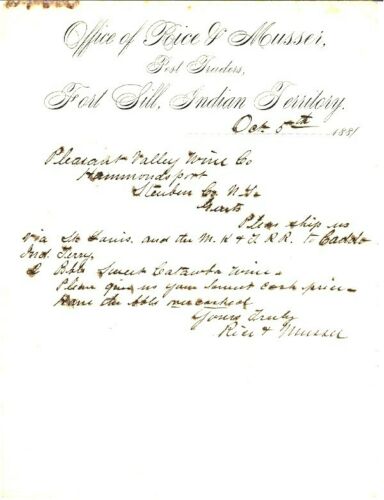 Office of Rice & Musser,
Post Traders,
Fort Sill, Indian Territory,
Oct 5th 1881
Pleasant Valley Wine Co
Hammondsport
Steuben Co N.Y.
Gents
Pleas ship us
via St Louis. and the M. K & T. R.R. to Caddo
Ind. Terry.
2 Bbls Sweet Catawba Wine -
Please give us your lowest cash price -
Have the bbls overcasked
Yours Truly
Rice & Musser